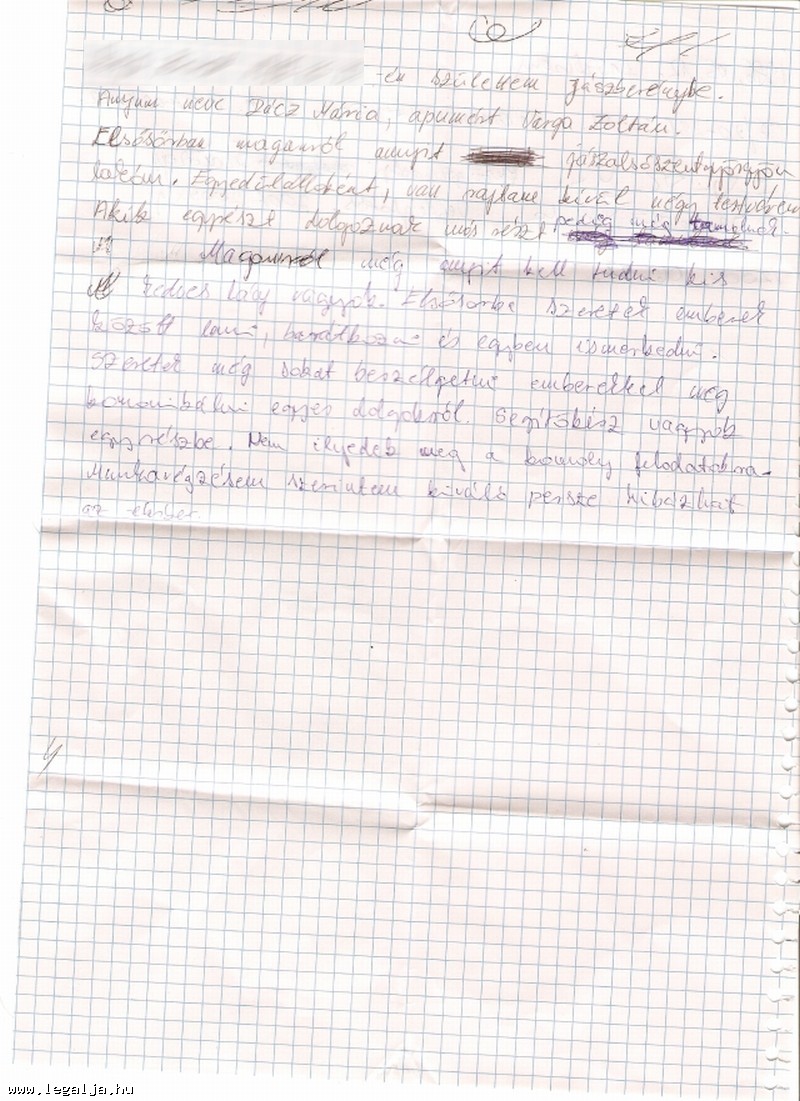 -én születtem Jászberénybe.
Anyum neve Dócz Mária, apumért Varga Zoltán.
Elsősorban magamról annyit jászalsószentgyörgyön
lakom. Egyedülállóként, van rajtam kívűl négy testvérem
Akik egyrészt dolgoznak más részt pedég még tanulnak.
Magamról még annyit kell tudni kis
kedves lány vagyok. Elsősorba szeretek emberek
között lenni, barátkozni és egyben ismerkedni.
Szeretek még sokat beszélgetni emberekkel meg
egyes dolgokról. Segítőkész vagyok
egyrészbe. Nem ilyedek meg a komoly feladatokra.
Munkavégzésem szerintem kiváló persze hibázhat
az ember.
www.legalja.hu